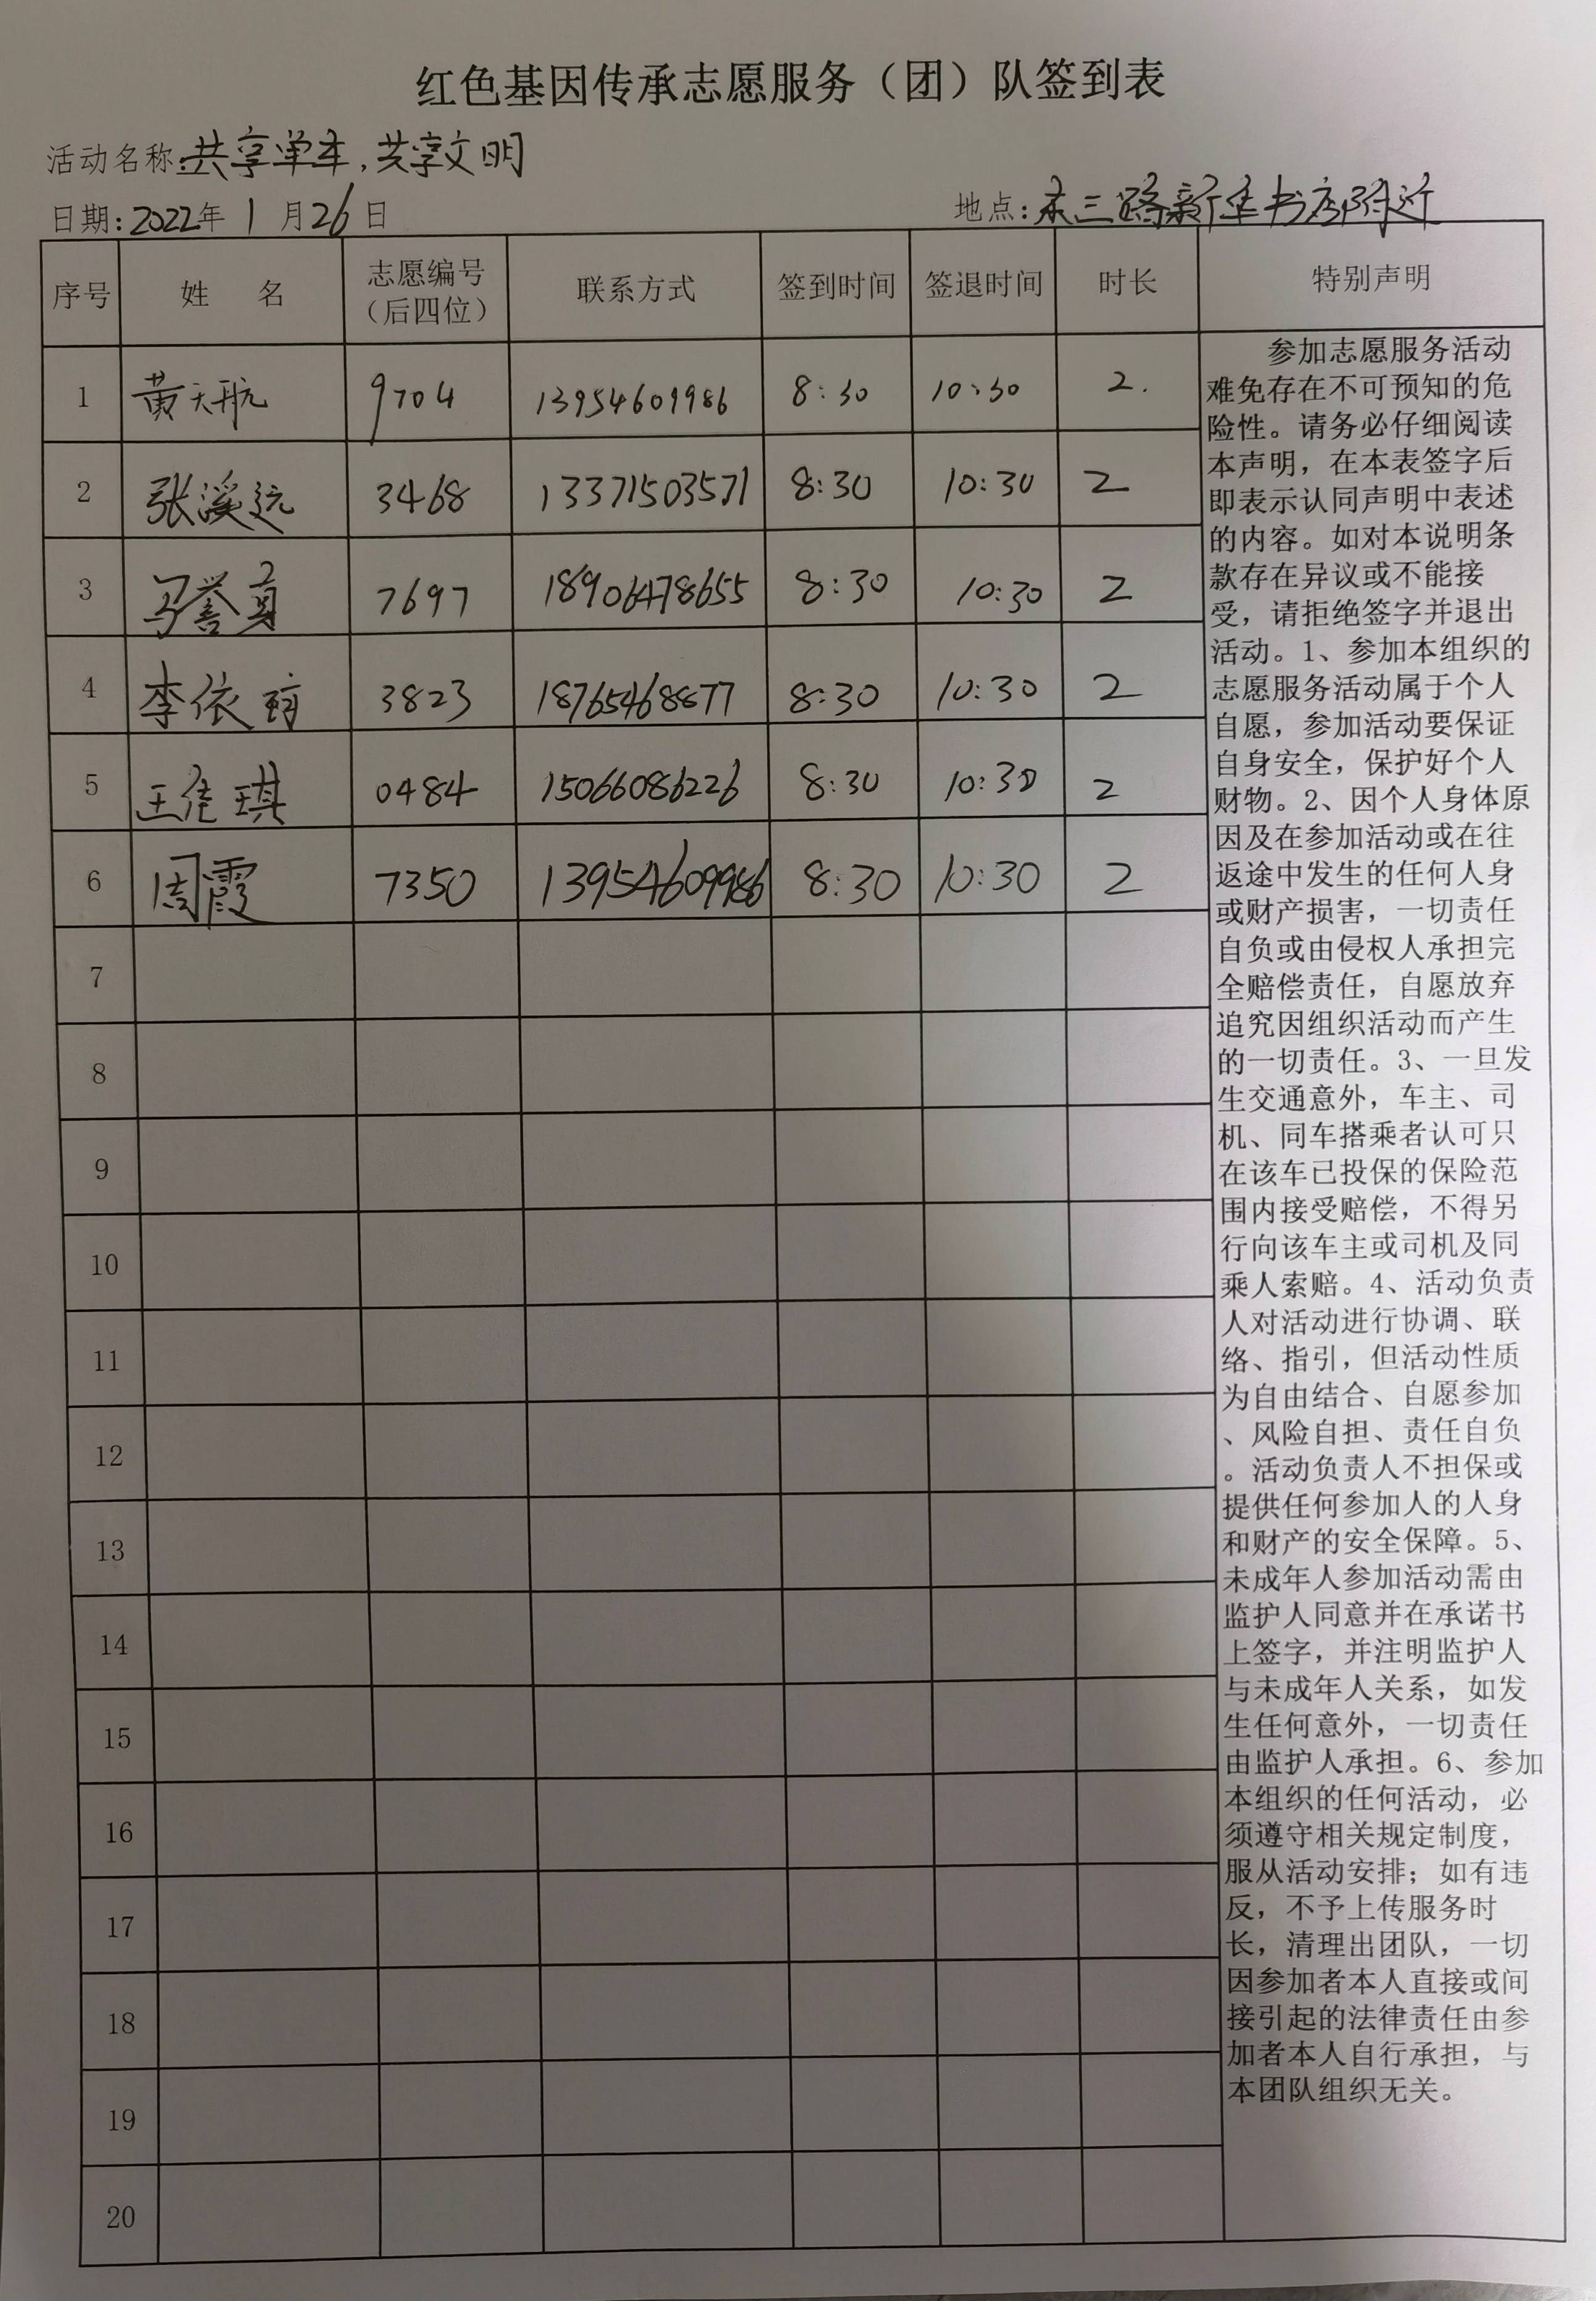 红色基因传承志愿服务（团）队签到表
活动名称:共享单车,共享文明
日期:2022年 1 月26 日
地点:东三路新华书店附近
序号 姓 名 志愿编号（后四位） 联系方式 签到时间 签退时间 时长 特别声明
1 黄天航 9704 13954609986 8:30 10:30 2.
2 张溪远 3468 13371503571 8:30 10:30 2
3 马誉真 7697 18906478655 8:30 10:30 2
4 李依 3823 18765468877 8:30 10:30 2
5 王佳琪 0484 15066086226 8:30 10:30 2
6 周霞 7350 13954609986 8:30 10:30 2
7
8
9
10
11
12
13
14
15
16
17
18
19
20
参加志愿服务活动
难免存在不可预知的危
险性。请务必仔细阅读
本声明，在本表签字后
即表示认同声明中表述
的内容。如对本说明条
款存在异议或不能接
受，请拒绝签字并退出
活动。1、参加本组织的
志愿服务活动属于个人
自愿，参加活动要保证
自身安全，保护好个人
财物。2、因个人身体原
因及在参加活动或在往
返途中发生的任何人身
或财产损害，一切责任
自负或由侵权人承担完
全赔偿责任，自愿放弃
追究因组织活动而产生
的一切责任。3、一旦发
生交通意外，车主、司
机、同车搭乘者认可只
在该车已投保的保险范
围内接受赔偿，不得另
行向该车主或司机及同
乘人索赔。4、活动负责
人对活动进行协调、联
络、指引，但活动性质
为自由结合、自愿参加
、风险自担、责任自负
。活动负责人不担保或
提供任何参加人的人身
和财产的安全保障。5、
未成年人参加活动需由
监护人同意并在承诺书
上签字，并注明监护人
与未成年人关系，如发
生任何意外，一切责任
由监护人承担。6、参加
本组织的任何活动，必
须遵守相关规定制度，
服从活动安排；如有违
反，不予上传服务时
长，清理出团队，一切
因参加者本人直接或间
接引起的法律责任由参
加者本人自行承担，与
本团队组织无关。